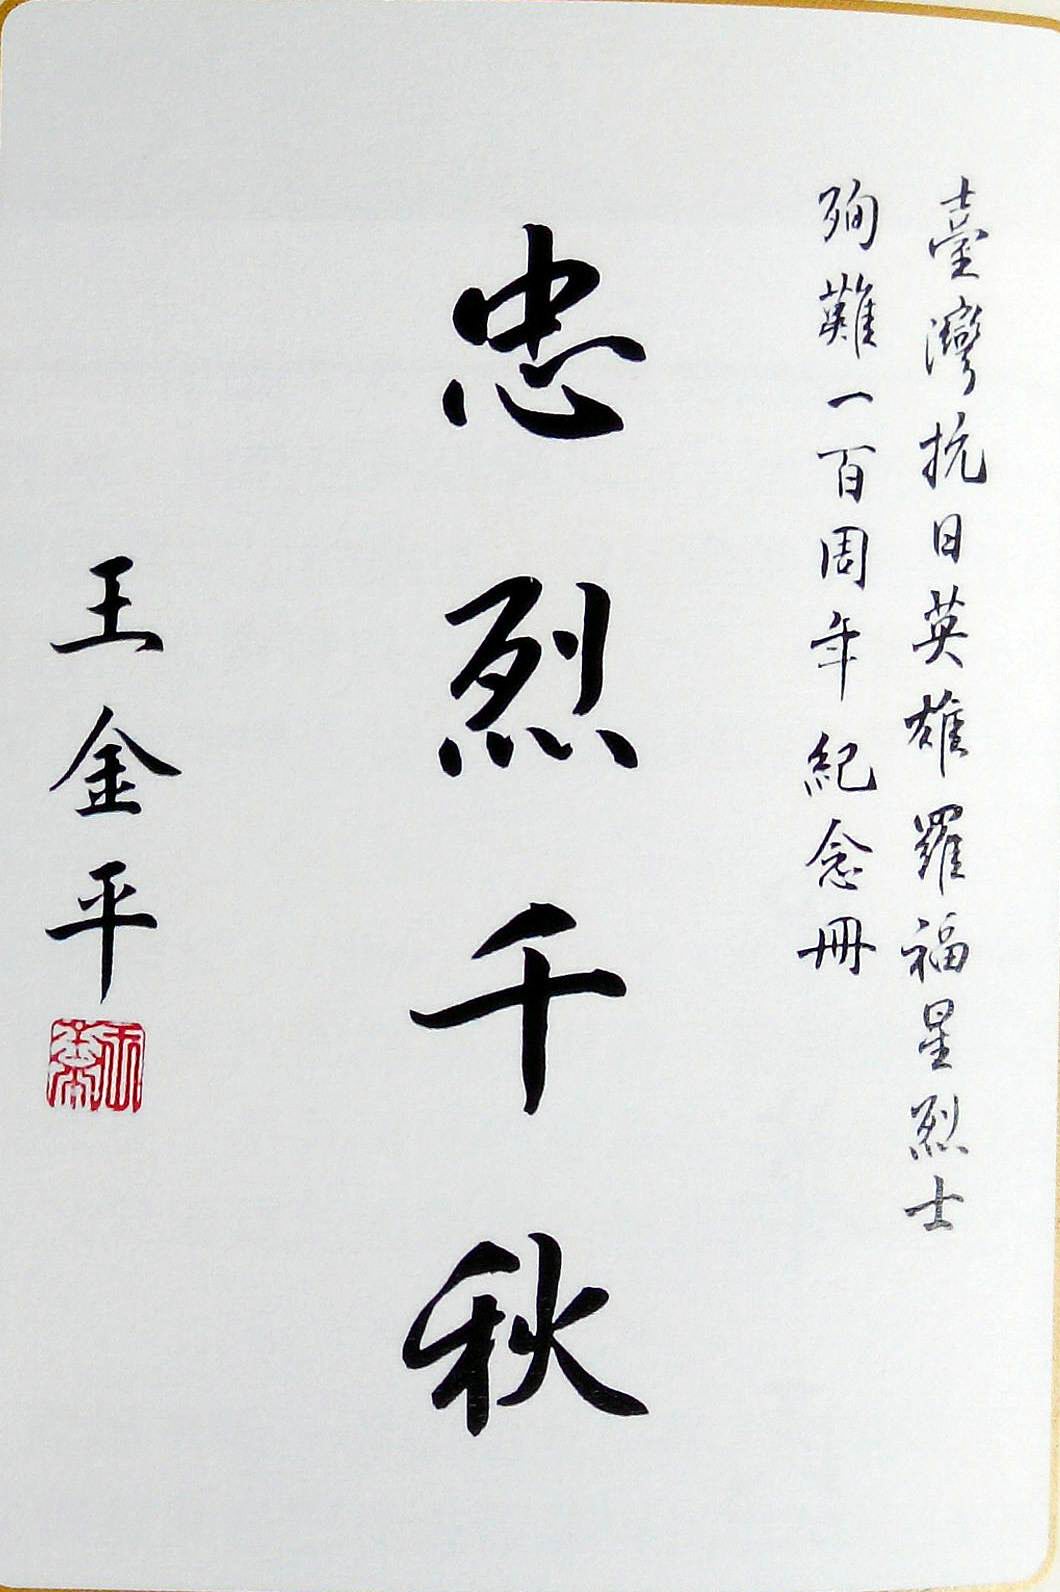 臺灣抗日英雄羅福星烈士
殉難一百周年紀念冊
忠烈千秋
王金平